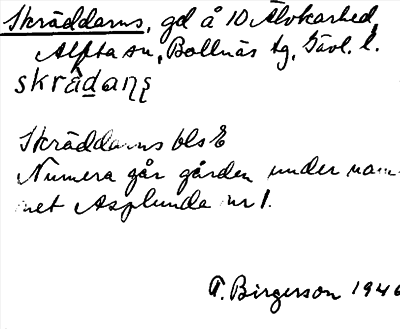 Skräddarns, gd å 10 Älvkarhed,
Alfta sn, Bollnäs tg, Gävl. l.
skrädaɳʂ
Skräddarns bls E
Numera går gården under nam-
net Asplunda nr 1.
T. Birgerson 1946